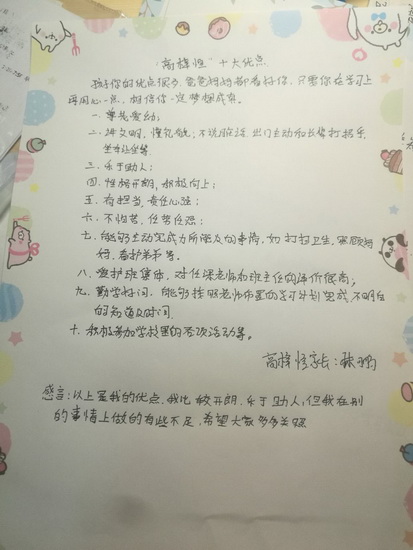 高梓惺 十大优点
孩子你的优点很多,爸爸妈妈都看好你,只要你在学习上
再用心一点,相信你一定梦想成真。
一、尊老爱幼;
二、讲文明,懂礼貌;不说脏话,出门主动和长辈打招乎,
三、乐于助人;
四、性格开朗,积极向上;
五、有担当,责任心强;
六、不怕苦,任劳任怨;
七、能够主动完成力所能及的事情,如打扫卫生,照顾
好、看护弟弟等。
八、爱护班集体,对任课老师和班主任的评价很高;
九、勤学好问,能够按照老师布置的学习计划完成,不明白
的知识及时问。
十、积极参加学校里的各项活动等。
高梓惺家长:
感言:以上是我的优点,我比较开朗、乐于助人,但我在别
的事情上做的有些不足,希望大家多多关照